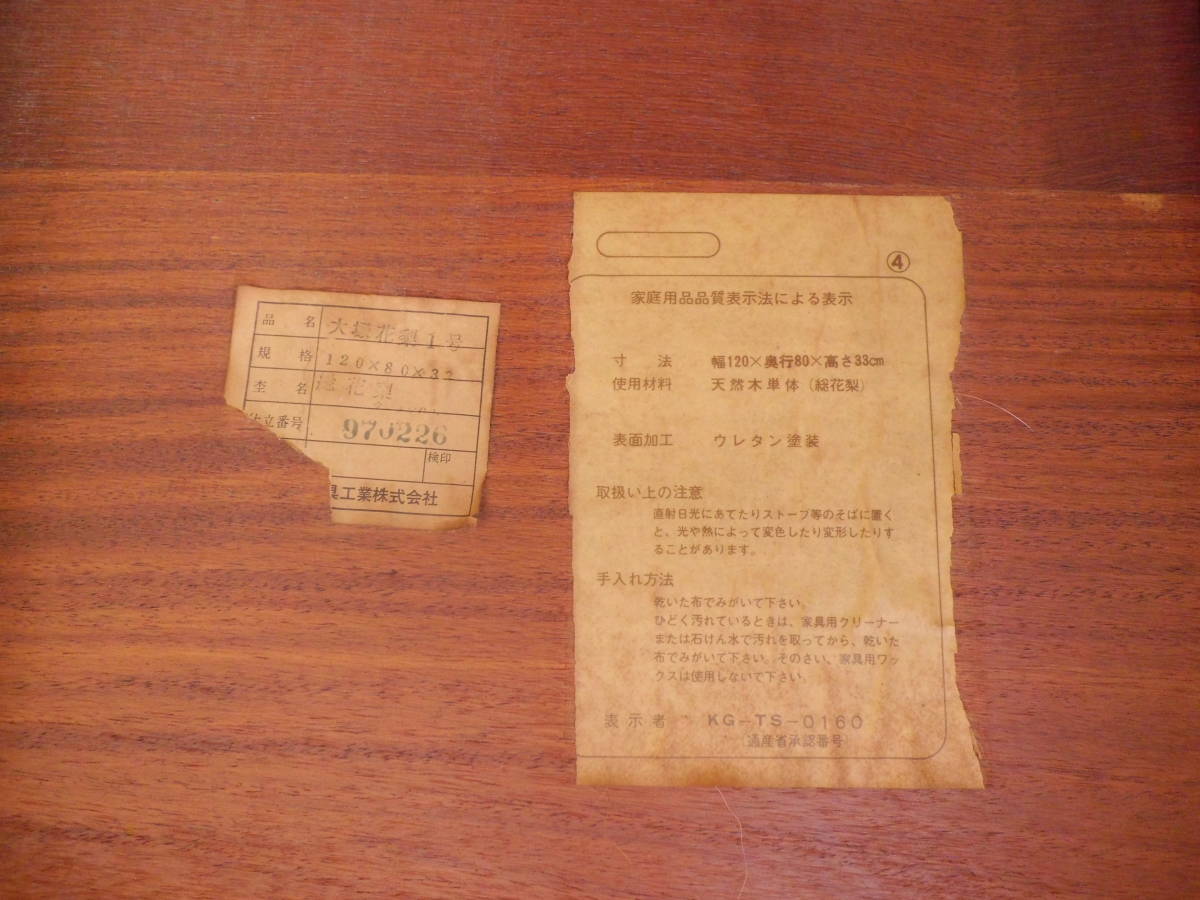 品名 大 花梨1号
規格 120×80×33
杢名 花梨
立番号 970226
検印
具工業株式会社
④
家庭用品品質表示法による表示
寸法 幅120×奥行80×高さ33cm
使用材料 天然木単体(総花梨)
表面加工 ウレタン塗装
取扱い上の注意
直射日光にあてたりストーブ等のそばに置く
と、光や熱によって変色したり変形したりす
ることがあります。
手入れ方法
乾いた布でみがいて下さい。
ひどく汚れているときは、家具用クリーナー
または石けん水で汚れを取ってから、乾いた
布でみがいて下さい。そのさい、家具用ワッ
クスは使用しないで下さい。
表示者 KG-TS-0160
(通産省承認番号)